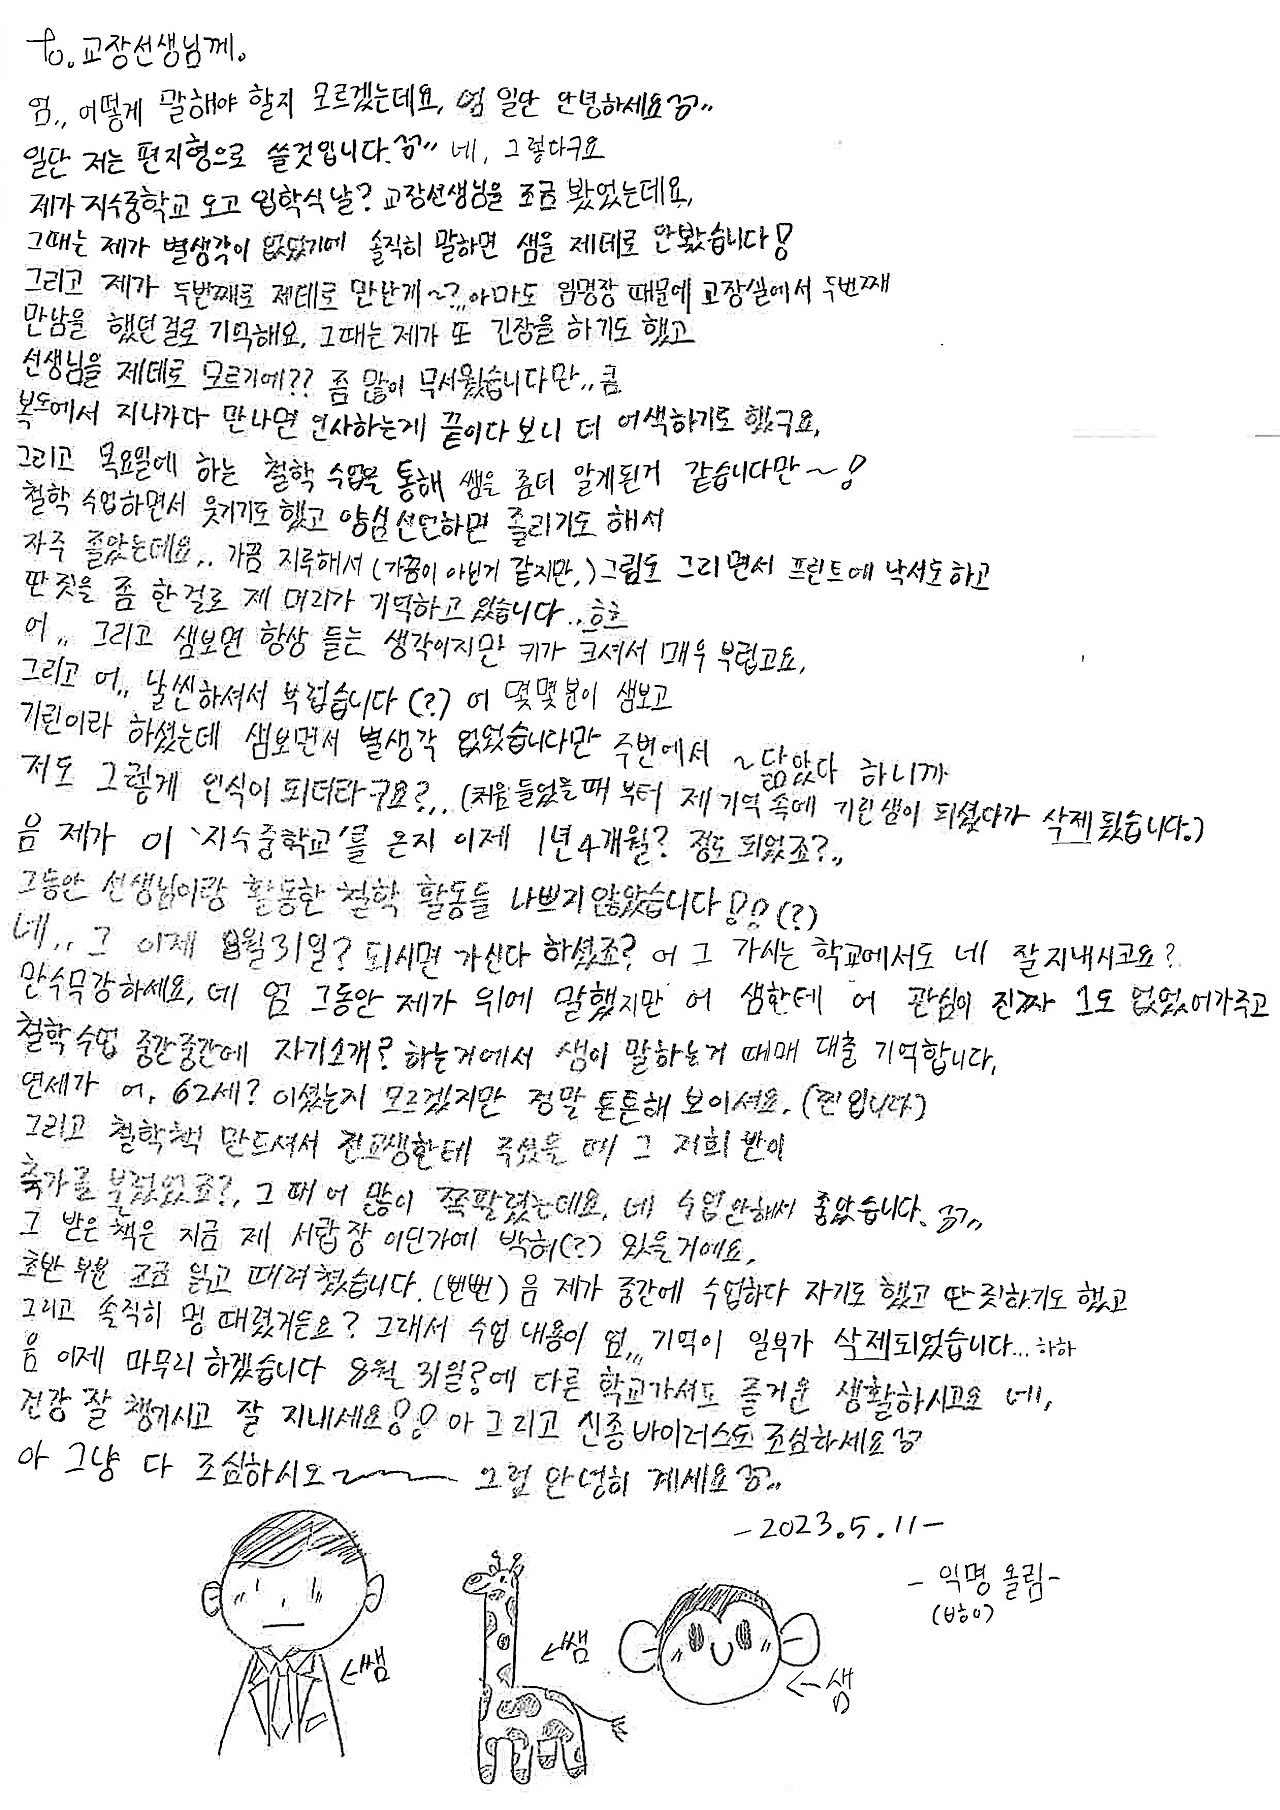 to. 교장선생님께.
엄.. 어떻게 말해야 할지 모르겠는데요, 엄 일단 안녕하세요 꾸..
일단 저는 편지형으로 쓸것입니다. 꾸.. 네, 그렇다구요
제가 지수중학교 오고 입학식날? 교장선생님을 조금 봤었는데요,
그때는 제가 별생각이 없었기에 솔직히 말하면 샘을 제데로 안봤습니다!
그리고 제가 두번째로 제데로 만난게~?.. 아마도 임명장 때문에 교장실에서 두번째
만남을 했던걸로 기억해요, 그때는 제가 또 긴장을 하기도 했고
선생님을 제데로 모르기에?? 좀 많이 무서웠습니다만.. 큼
복도에서 지나가다 만나면 인사하는게 끝이다보니 더 어색하기도 했구요,
그리고 목요일에 하는 철학 수업을 통해 쌤을 좀더 알게된거 같습니다만~!
철학 수업하면서 웃기기도 했고 양심선언하면 졸리기도 해서
자주 졸았는데요.. 가끔 지루해서 (가끔이 아닌거 같지만,) 그림도 그리면서 프린트에 낙서도하고
딴짓을 좀 한걸로 제 머리가 기억하고 있습니다.. 흐흐
어.. 그리고 샘보면 항상 듣는 생각이지만 키가 크셔서 매우 부럽고요,
그리고 어.. 날씬하셔서 부럽습니다 (?) 어 몇몇분이 샘보고
기린이라 하셨는데 샘보면서 별생각 없었습니다만 주변에서 ~닮았다 하니까
저도 그렇게 인식이 되더라구요?.. (처음들었을때 부터 제 기억 속에 기린샘이 되셨다가 삭제됬습니다.)
음 제가 이 '지수중학교'를 온지 이제 1년 4개월? 정도 되었죠?..
그동안 선생님이랑 활동한 철학 활동들 나쁘지않았습니다!! (?)
네.. 그 이제 8월31일? 되시면 가신다 하셨죠? 어 그 가시는 학교에서도 네 잘지내시고요?
만수무강하세요, 네 엄 그동안 제가 위에 말했지만 어 샘한테 어 관심이 진짜 1도 없었어가주고
철학수업 중간중간에 자기소개? 하는거에서 샘이 말하는거 때매 대충 기억합니다,
연세가 어, 62세? 이셨는지 모르겠지만 정말 튼튼해 보이셔요. (찐입니다)
그리고 철학책 만드셔서 전교생한테 주셨을 때 그 저희 반이
축가를 불렀었죠?, 그때 어 많이 쪽팔렸는데요, 네 수업안해서 좋았습니다. 꾸..
그 받은 책은 지금 제 서랍장 어딘가에 박혀(?) 있을거에요,
초반 부분 조금 읽고 때려쳤습니다. (뻔뻔) 음 제가 중간에 수업하다 자기도 했고 딴짓하기도 했고
그리고 솔직히 멍 때렸거든요? 그래서 수업 내용이 엄... 기억이 일부가 삭제되었습니다... 하하
음 이제 마무리 하겠습니다 8월 31일?에 다른 학교가셔도 즐거운 생활하시고요 네,
건강 잘 챙기시고 잘 지내세요!! 아 그리고 신종바이러스도 조심하세요 꾸
아 그냥 다 조심하시오~~~ 그럼 안녕히 계세요 꾸..
-2023.5.11-
- 익명 올림-
←쌤
←쌤
←샘